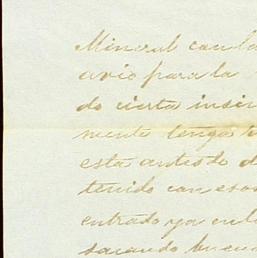 Mineral con la
avio para la
do cierta insin
mente tengo
esta antes de d
tenido con esos
entrado ya en l
sacando buen